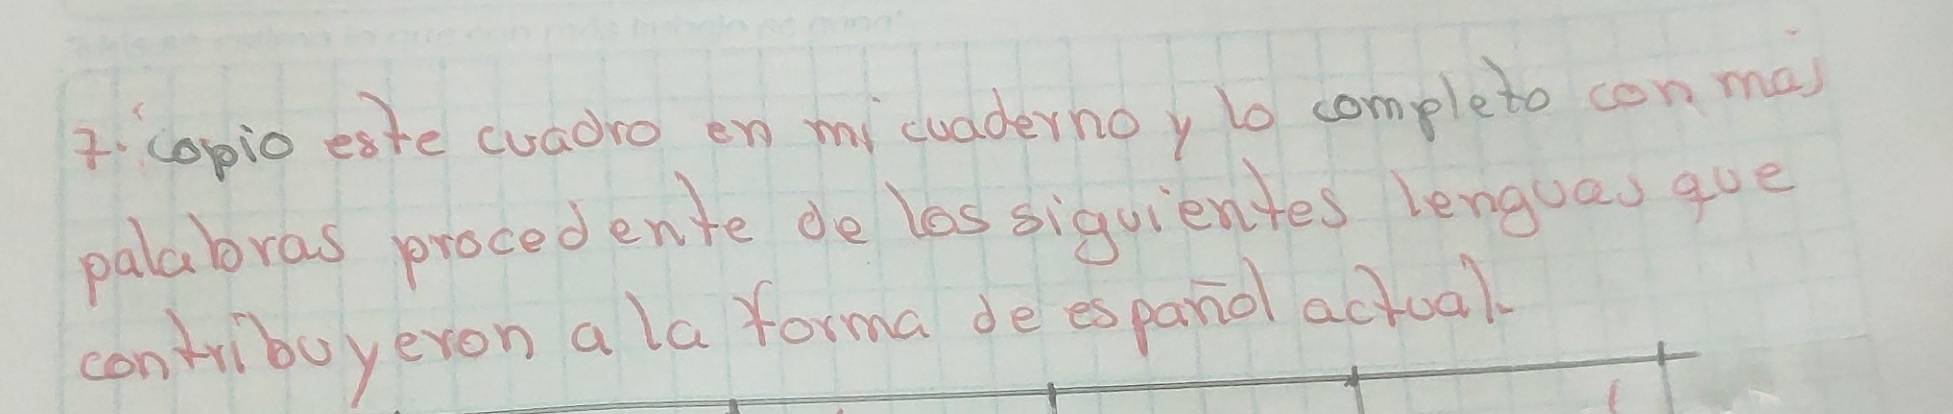 7. copio este cuadro en mi cuaderno y lo completo con más
palabras procedente de las siguientes lenguas que
contribuyeron a la forma de español actual.